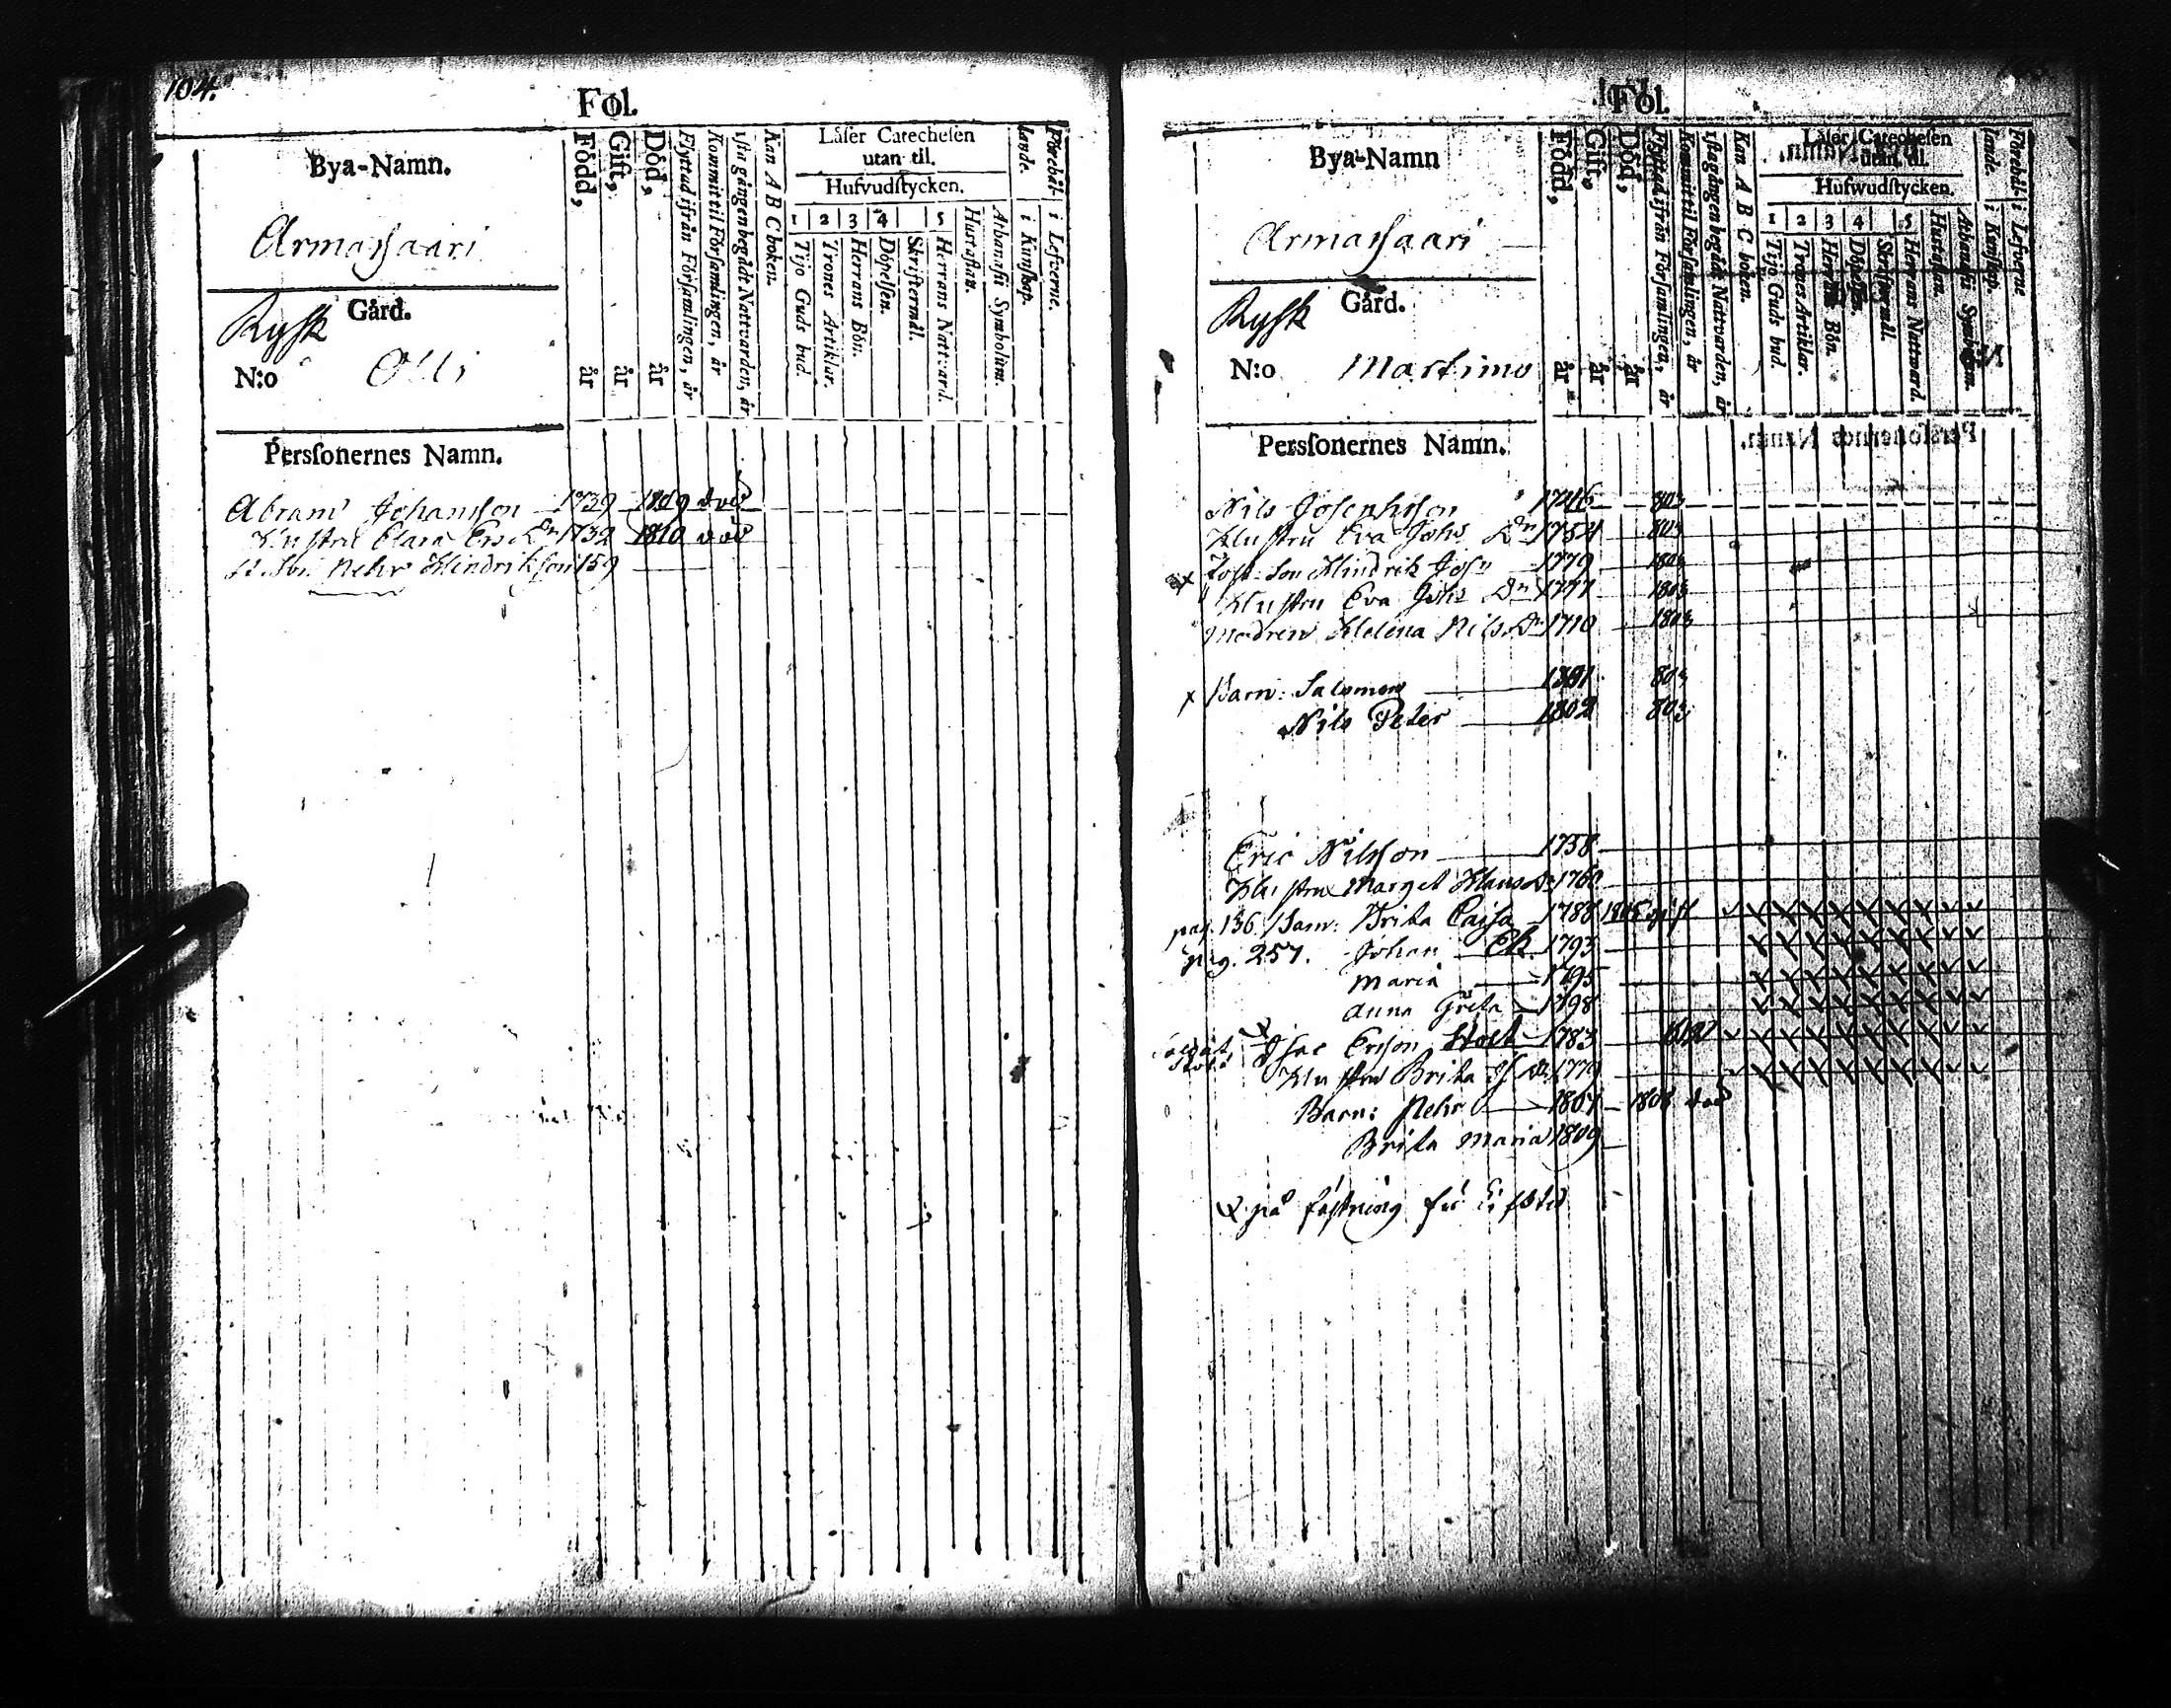 104.
Fol.
Bya-Namn.
Armassaari
Rysk Gård.
N:o Olli
Personernes Namn.
Född, år
Gift, år
Död, år
Flyttad ifrån Församlingen, år
Kommit til Församlingen, år
1sta gången begådt Nattvarden, år
Kan A B C boken.
Läser Catechesen
utan til.
Hufvudstycken.
1 2 3 4 5
Tijo Guds bud.
Trones Artiklar.
Herrans Bön.
Döpelsen.
Skriftermål.
Herrans Nattvard.
Hustaflan.
Athanasii Symbolum.
Förehållande.
i Kunskap.
i Lefverne.
Abram Johansson 1739 1809 död
Hustru Clara Ers Dr 1732 1810 död
Pehr Hindrikson 159
Fol.
Bya-Namn
Armassaari
Rysk Gård.
N:o Martimo
Personernes Namn.
Född, år
Gift, år
Död, år
Flyttad ifrån Församlingen, år
Kommit til Församlingen, år
1sta gången begådt Nattvarden, år
Kan A B C boken.
Läser Catechesen
utan til.
Hufwudstycken.
1 2 3 4 5
Tijo Guds bud.
Trones Artiklar.
Herrans Bön.
Döpelsen.
Skriftermål.
Herrans Nattvard.
Hustaflan.
Athanasii Symbolum.
Förehållande.
i Kunskap.
i Lefverne
Nils Josephsson 1746 803
Hustru Eva Johs Dr 1754 803
Son Hindrik Josn 1779 1803
Hustru Eva Johs Dr 1777 1803
Modren Helena Nils Dr 1710 1803
x Barn: Salomon 1801 803
Nils Peter 1802 803
Eric Nilsson 1758
Hustru Marget Hans Dr 1760
pag. 136 Barn: Brita Cajsa 1788 gift
pag. 257. Johan Ek 1793
Maria 1795
Anna Greta 1798
Soldat Isac Erson Stolt 1783
Stolt Hustru Brita Is Dr 1779
Barn: Pehr 1807 1808 död
Brita Maria 1809
på fästning för